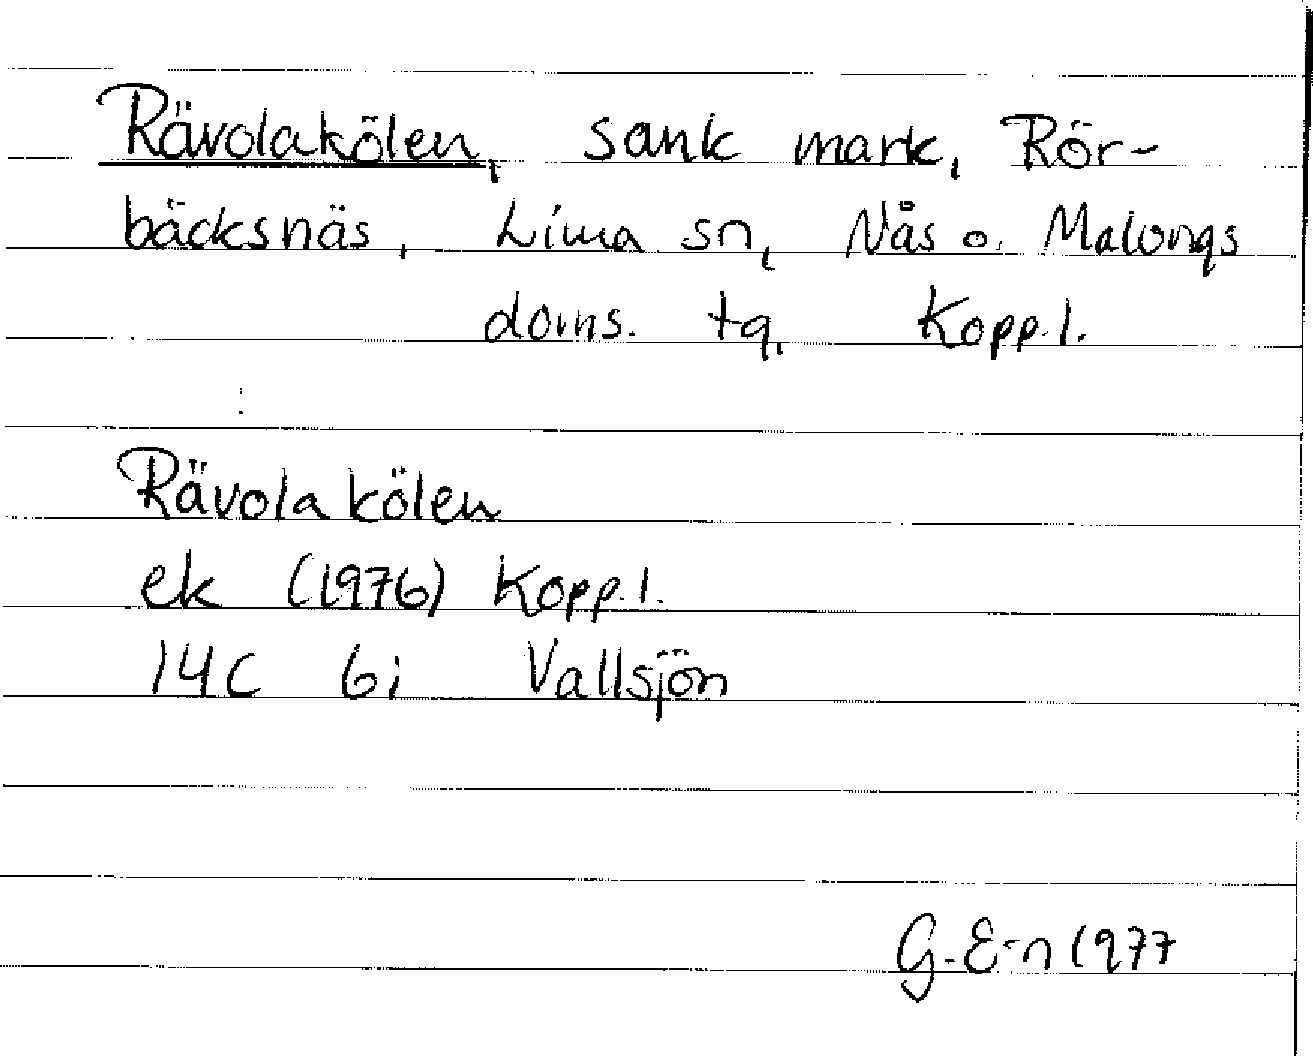 Rävolakölen, sank mark, Rör-
bäcksnäs, Lima sn, Nås o. Malungs
doms. tg, Kopp. l.
Rävola kölen
ek (1976) Kopp. l.
14C 6i Vallsjön
G. E-n 1977